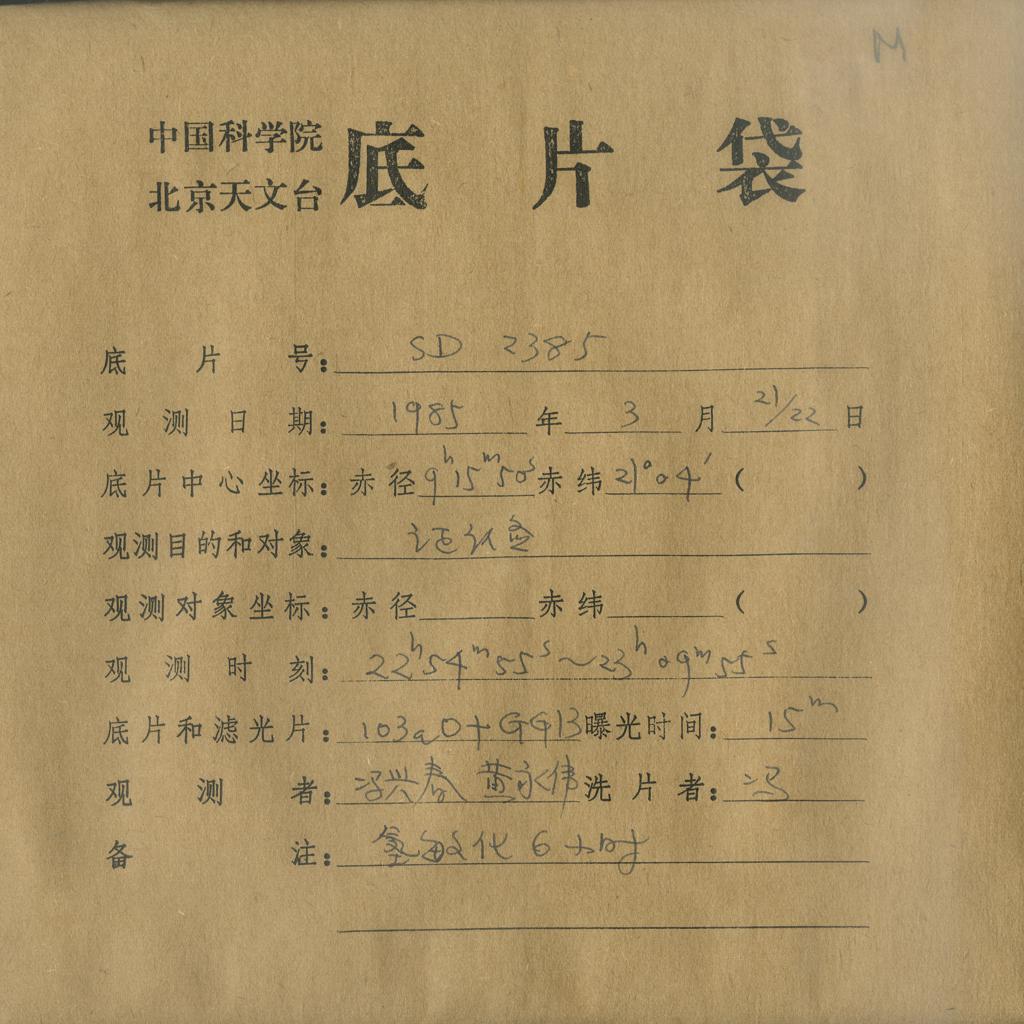 M
中国科学院
北京天文台
底片袋
底片号：SD 2385
观测日期：1985年3月21/22日
底片中心坐标：赤径9ʰ15ᵐ50ˢ赤纬21°04′（ ）
观测目的和对象：证认
观测对象坐标：赤径 赤纬 （ ）
观测时刻：22ʰ54ᵐ55ˢ～23ʰ09ᵐ55ˢ
底片和滤光片：103aO+GG13曝光时间：15ᵐ
观测者：冯兴春 黄永伟洗片者：冯
备注：氢敏化6小时